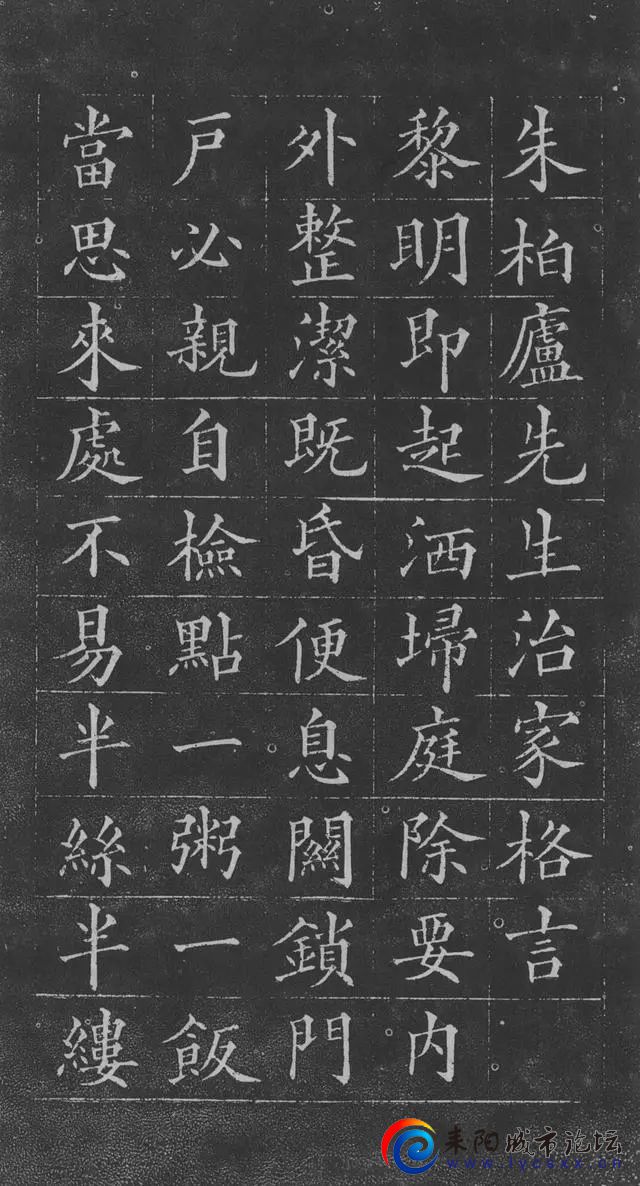 朱柏廬先生治家格言
黎明即起洒埽庭除要内
外整潔既昏便息關鎖門
戸必親自檢點一粥一飯
當思來處不易半絲半縷
耒阳城市论坛
www.lycsxx.cn